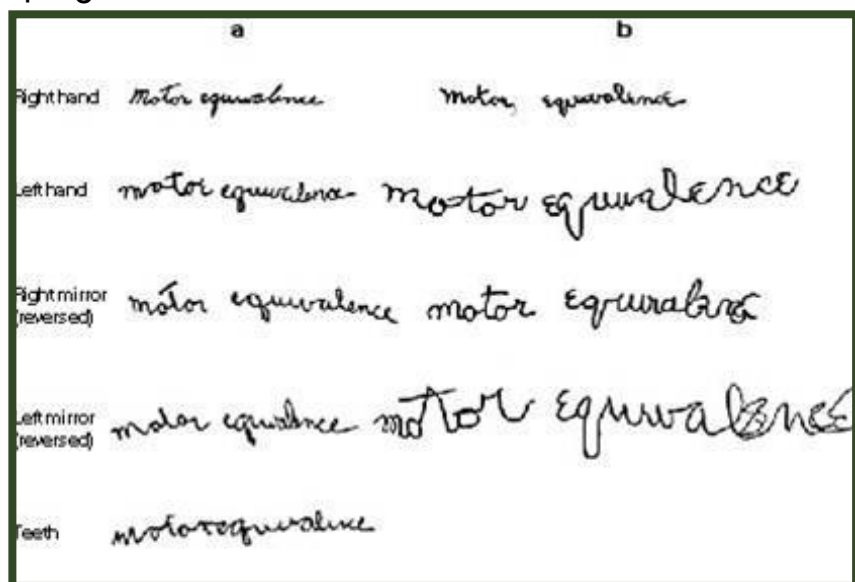 a b
Right hand motor equivalence motor equivalence
Left hand motor equivalence motor equivalence
Right mirror (reversed) motor equivalence motor
Left mirror (reversed) motor equivalence motor equivalence
Teeth motor equivalence